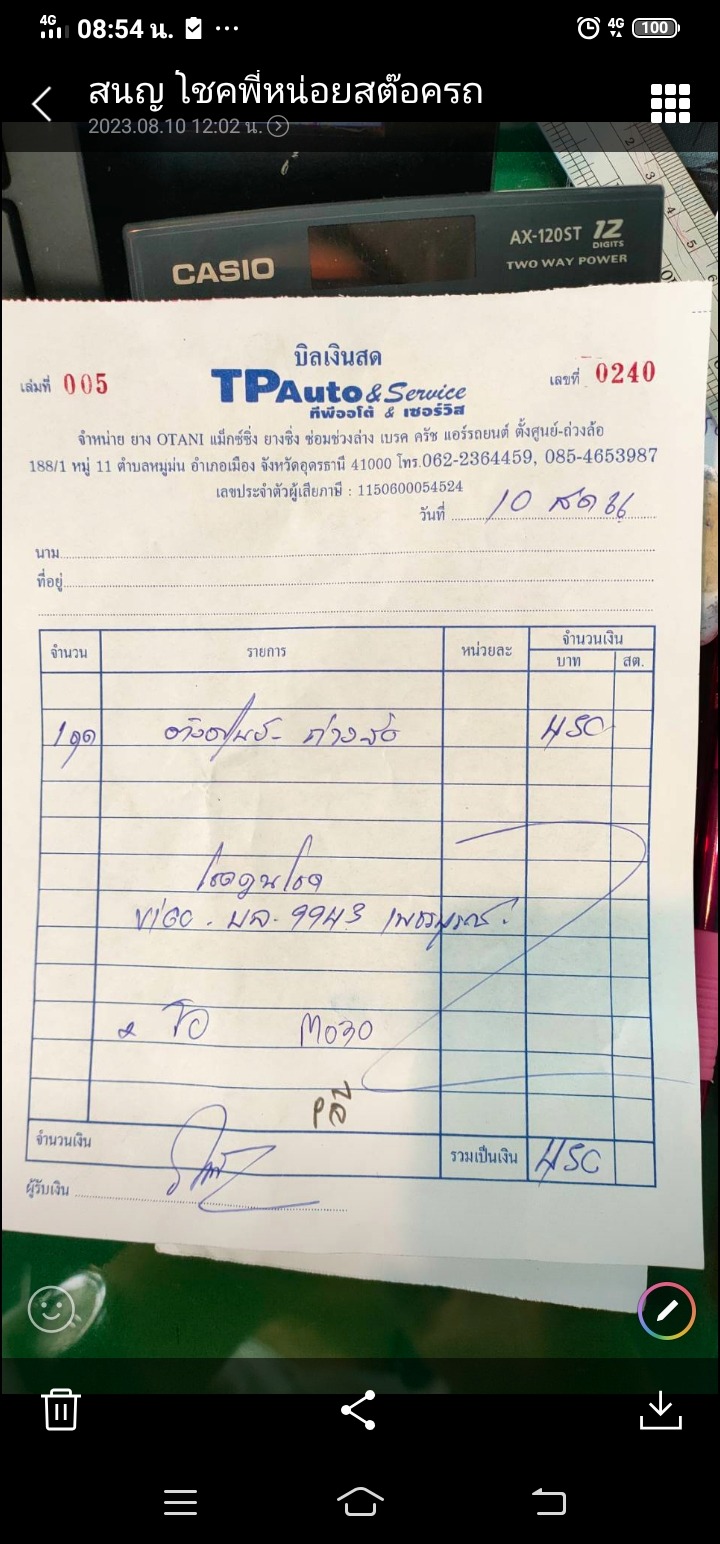 4G 08:54 น. ... 4G 100
สนญ โชคพี่หน่อยสต๊อครถ
2023.08.10 12:02 น.
CASIO
AX-120ST 12 DIGITS
TWO WAY POWER
บิลเงินสด
เล่มที่ 005
TP Auto & Service
เลขที่ 0240
ทีพีออโต้ & เซอร์วิส
จำหน่าย ยาง OTANI แม็กซ์ซิ่ง ยางซิ่ง ซ่อมช่วงล่าง เบรค ครัช แอร์รถยนต์ ตั้งศูนย์-ถ่วงล้อ
188/1 หมู่ 11 ตำบลหมูม่น อำเภอเมือง จังหวัดอุดรธานี 41000 โทร.062-2364459, 085-4653987
เลขประจำตัวผู้เสียภาษี : 1150600054524
วันที่ 10 สค 66
นาม
ที่อยู่
จำนวน รายการ หน่วยละ จำนวนเงิน
บาท สต.
1 ชุด ตั้งศูนย์ - ถ่วงล้อ 450
โชคคูนโชค
VIGO - บล - 9943 เพชรบูรณ์
M030
จำนวนเงิน รวมเป็นเงิน 450
ผู้รับเงิน